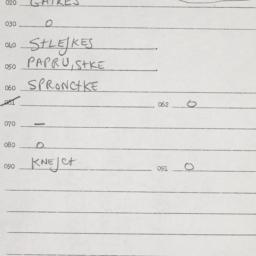 020 GAIKES
030 O
040 S+LEJKES
050 PAPRUS+KE
060 SPRONC+KE
061 062 O
070 —
080 O
090 KNEJC+ 091 O